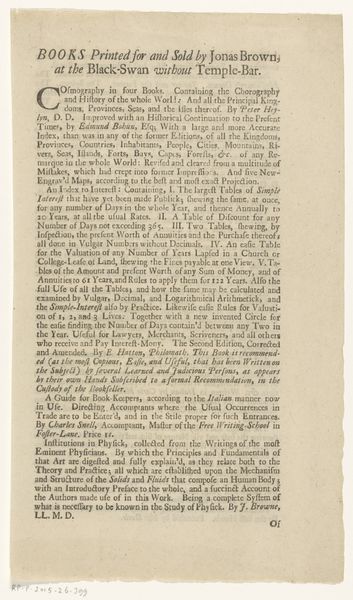 BOOKS Printed for and Sold by Jonas Brown,
at the Black-Swan without Temple-Bar.
COsmography in four Books. Containing the Chorography
and History of the whole World: And all the Principal King-
doms, Provinces, Seas, and the Isles thereof. By Peter Hey-
lyn, D. D. Improv'd with an Historical Continuation to the Present
Times, by Edmund Bohun, Esq; With a large and more Accurate
Index, than was in any of the former Editions, of all the Kingdoms,
Provinces, Countries, Inhabitants, People, Cities, Mountains, Ri-
vers, Seas, Islands, Forts, Bays, Capes, Forests, &c. of any Re-
marque in the whole World: Revised and cleared from a multitude of
Mistakes, which had crept into former Impressions. And five New-
Engrav'd Maps, according to the best and most exact Projection.
An Index to Interest: Containing, I. The largest Tables of Simple
Interest that have yet been made Publick; shewing the same, at once,
for any Number of Days in the whole Year, and thence Annually to
20 Years, at all the usual Rates. II. A Table of Discount for any
Number of Days not exceeding 365. III. Two Tables, shewing, by
Inspection, the present Worth of Annuities and the Purchase thereof;
all done in Vulgar Numbers without Decimals. IV. An easie Table
for the Valuation of any Number of Years Lapsed in a Church or
College-Lease of Land, shewing the Fines payable at one View. V. Ta-
bles of the Amount and present Worth of any Sum of Money, and of
Annuities to 61 Years, and Rules to apply them for 122 Years. Also the
full Use of all the Tables; and how the same may be calculated and
examined by Vulgar, Decimal, and Logarithmical Arithmetick; and
the Simple-Interest also by Practice. Likewise easie Rules for Valuati-
on of 1, 2, and 3 Lives: Together with a new invented Circle for
the ease finding the Number of Days contain'd between any Two in
the Year. Useful for Lawyers, Merchants, Scriveners, and all others
who receive and Pay Interest-Mony. The Second Edition, Corrected
and Amended. By E. Hatton, Philomath. This Book is recommend-
ed (as the most Copious, Easie, and Useful, that has been Written on
the Subject) by several Learned and Judicious Persons, as appears
by their own Hands Subscribed to a formal Recommendation, in the
Custody of the Bookseller.
A Guide for Book-Keepers, according to the Italian manner now
in Use. Directing Accomptants where the Usual Occurrences in
Trade are to be Enter'd, and in the Stile proper for such Entrances.
By Charles Snell, Accomptant, Master of the Free Writing-School in
Foster-Lane. Price 1s.
Institutions in Physick, collected from the Writings of the most
Eminent Physicians. By which the Principles and Fundamentals of
that Art are digested and fully explain'd, as they relate both to the
Theory and Practice; all which are establish'd upon the Mechanism
and Structure of the Solids and Fluids that compose an Human Body;
with an Introductory Preface to the whole, and a succinct Account of
the Authors made use of in this Work. Being a complete System of
what is necessary to be known in the Study of Physick. By J. Browne,
LL. M. D.
Of
RP-P-2015-26-399